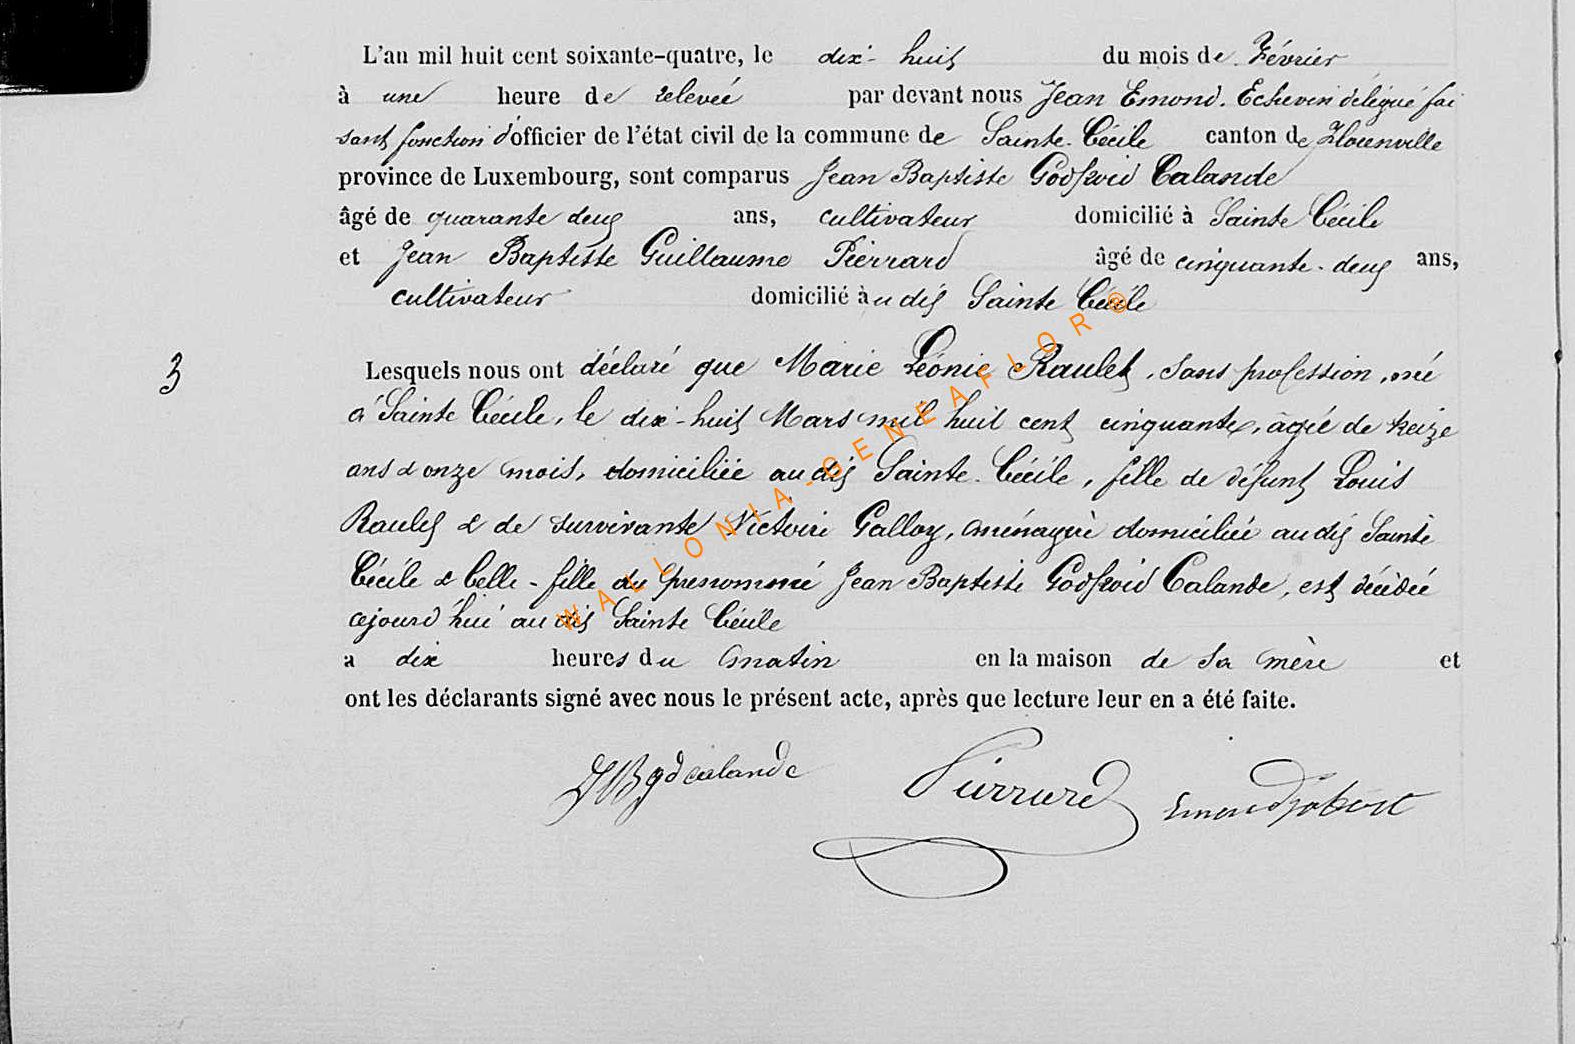 L'an mil huit cent soixante-quatre, le dix-huit du mois de Février
à une heure de relevée par devant nous Jean Emond. Echevin délégué fai
sant fonction d'officier de l'état civil de la commune de Sainte-Cécile canton de Florenville
province de Luxembourg, sont comparus Jean Baptiste Godfroid Calande
âgé de quarante deux ans, cultivateur domicilié à Sainte Cécile
et Jean Baptiste Guillaume Pierrard âgé de cinquante-deux ans,
cultivateur domicilié au dit Sainte Cécile
3
Lesquels nous ont déclaré que Marie Léonie Raulet, sans profession, né
à Sainte Cécile, le dix-huit Mars mil huit cent cinquante, agée de treize
ans & onze mois, domiciliée au dit Sainte-Cécile, fille de défunt Louis
Raulet & de survivante Victoire Galloy, ménagère domiciliée au dit Sainte
Cécile & belle-fille du prénommé Jean Baptiste Godfroid Calande, est décédée
cejourd'hui au dit Sainte Cécile
a dix heures du matin en la maison de sa mère et
ont les déclarants signé avec nous le présent acte, après que lecture leur en a été faite.
JBgdcalande Pierrard Emond
WALLONIA-GENEAFLOR®